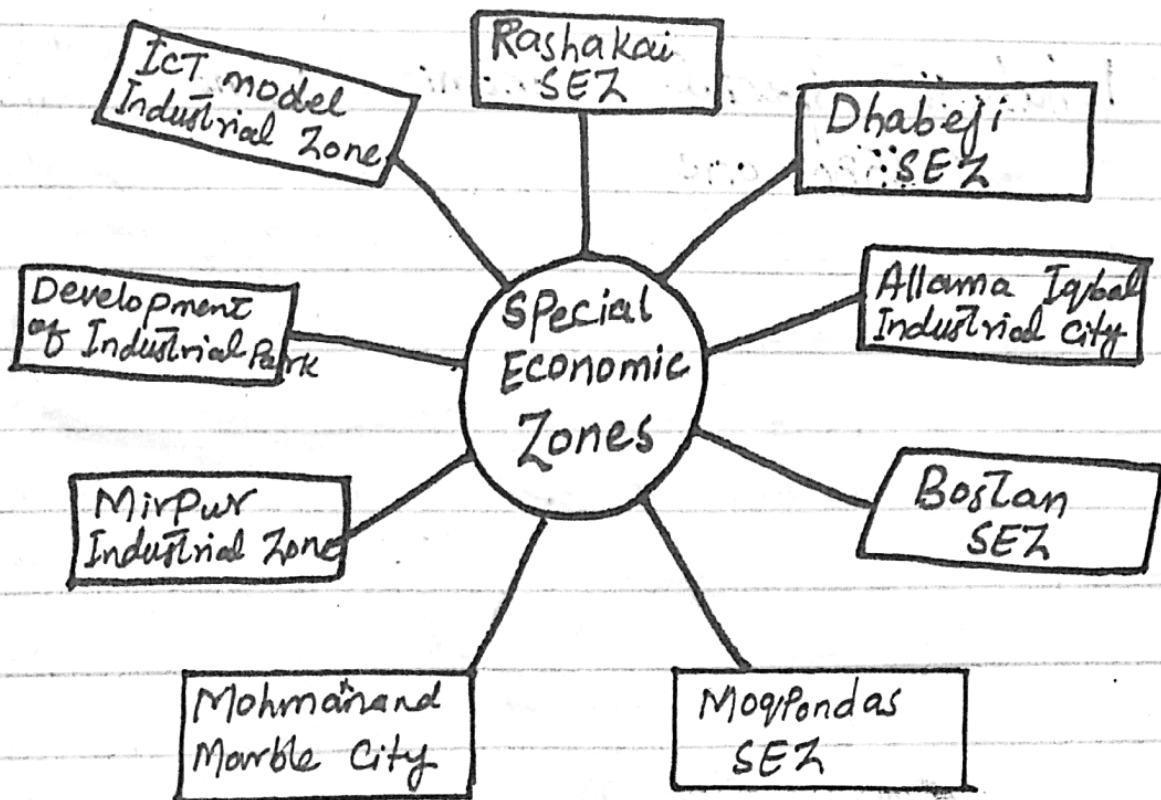 Rashakai
SEZ
ICT model
Industrial Zone
Dhabeji
SEZ
Development
of Industrial Park
Special
Economic
Zones
Allama Iqbal
Industrial City
Mirpur
Industrial Zone
Bostan
SEZ
Mohmanand
Marble City
Moqpondas
SEZ